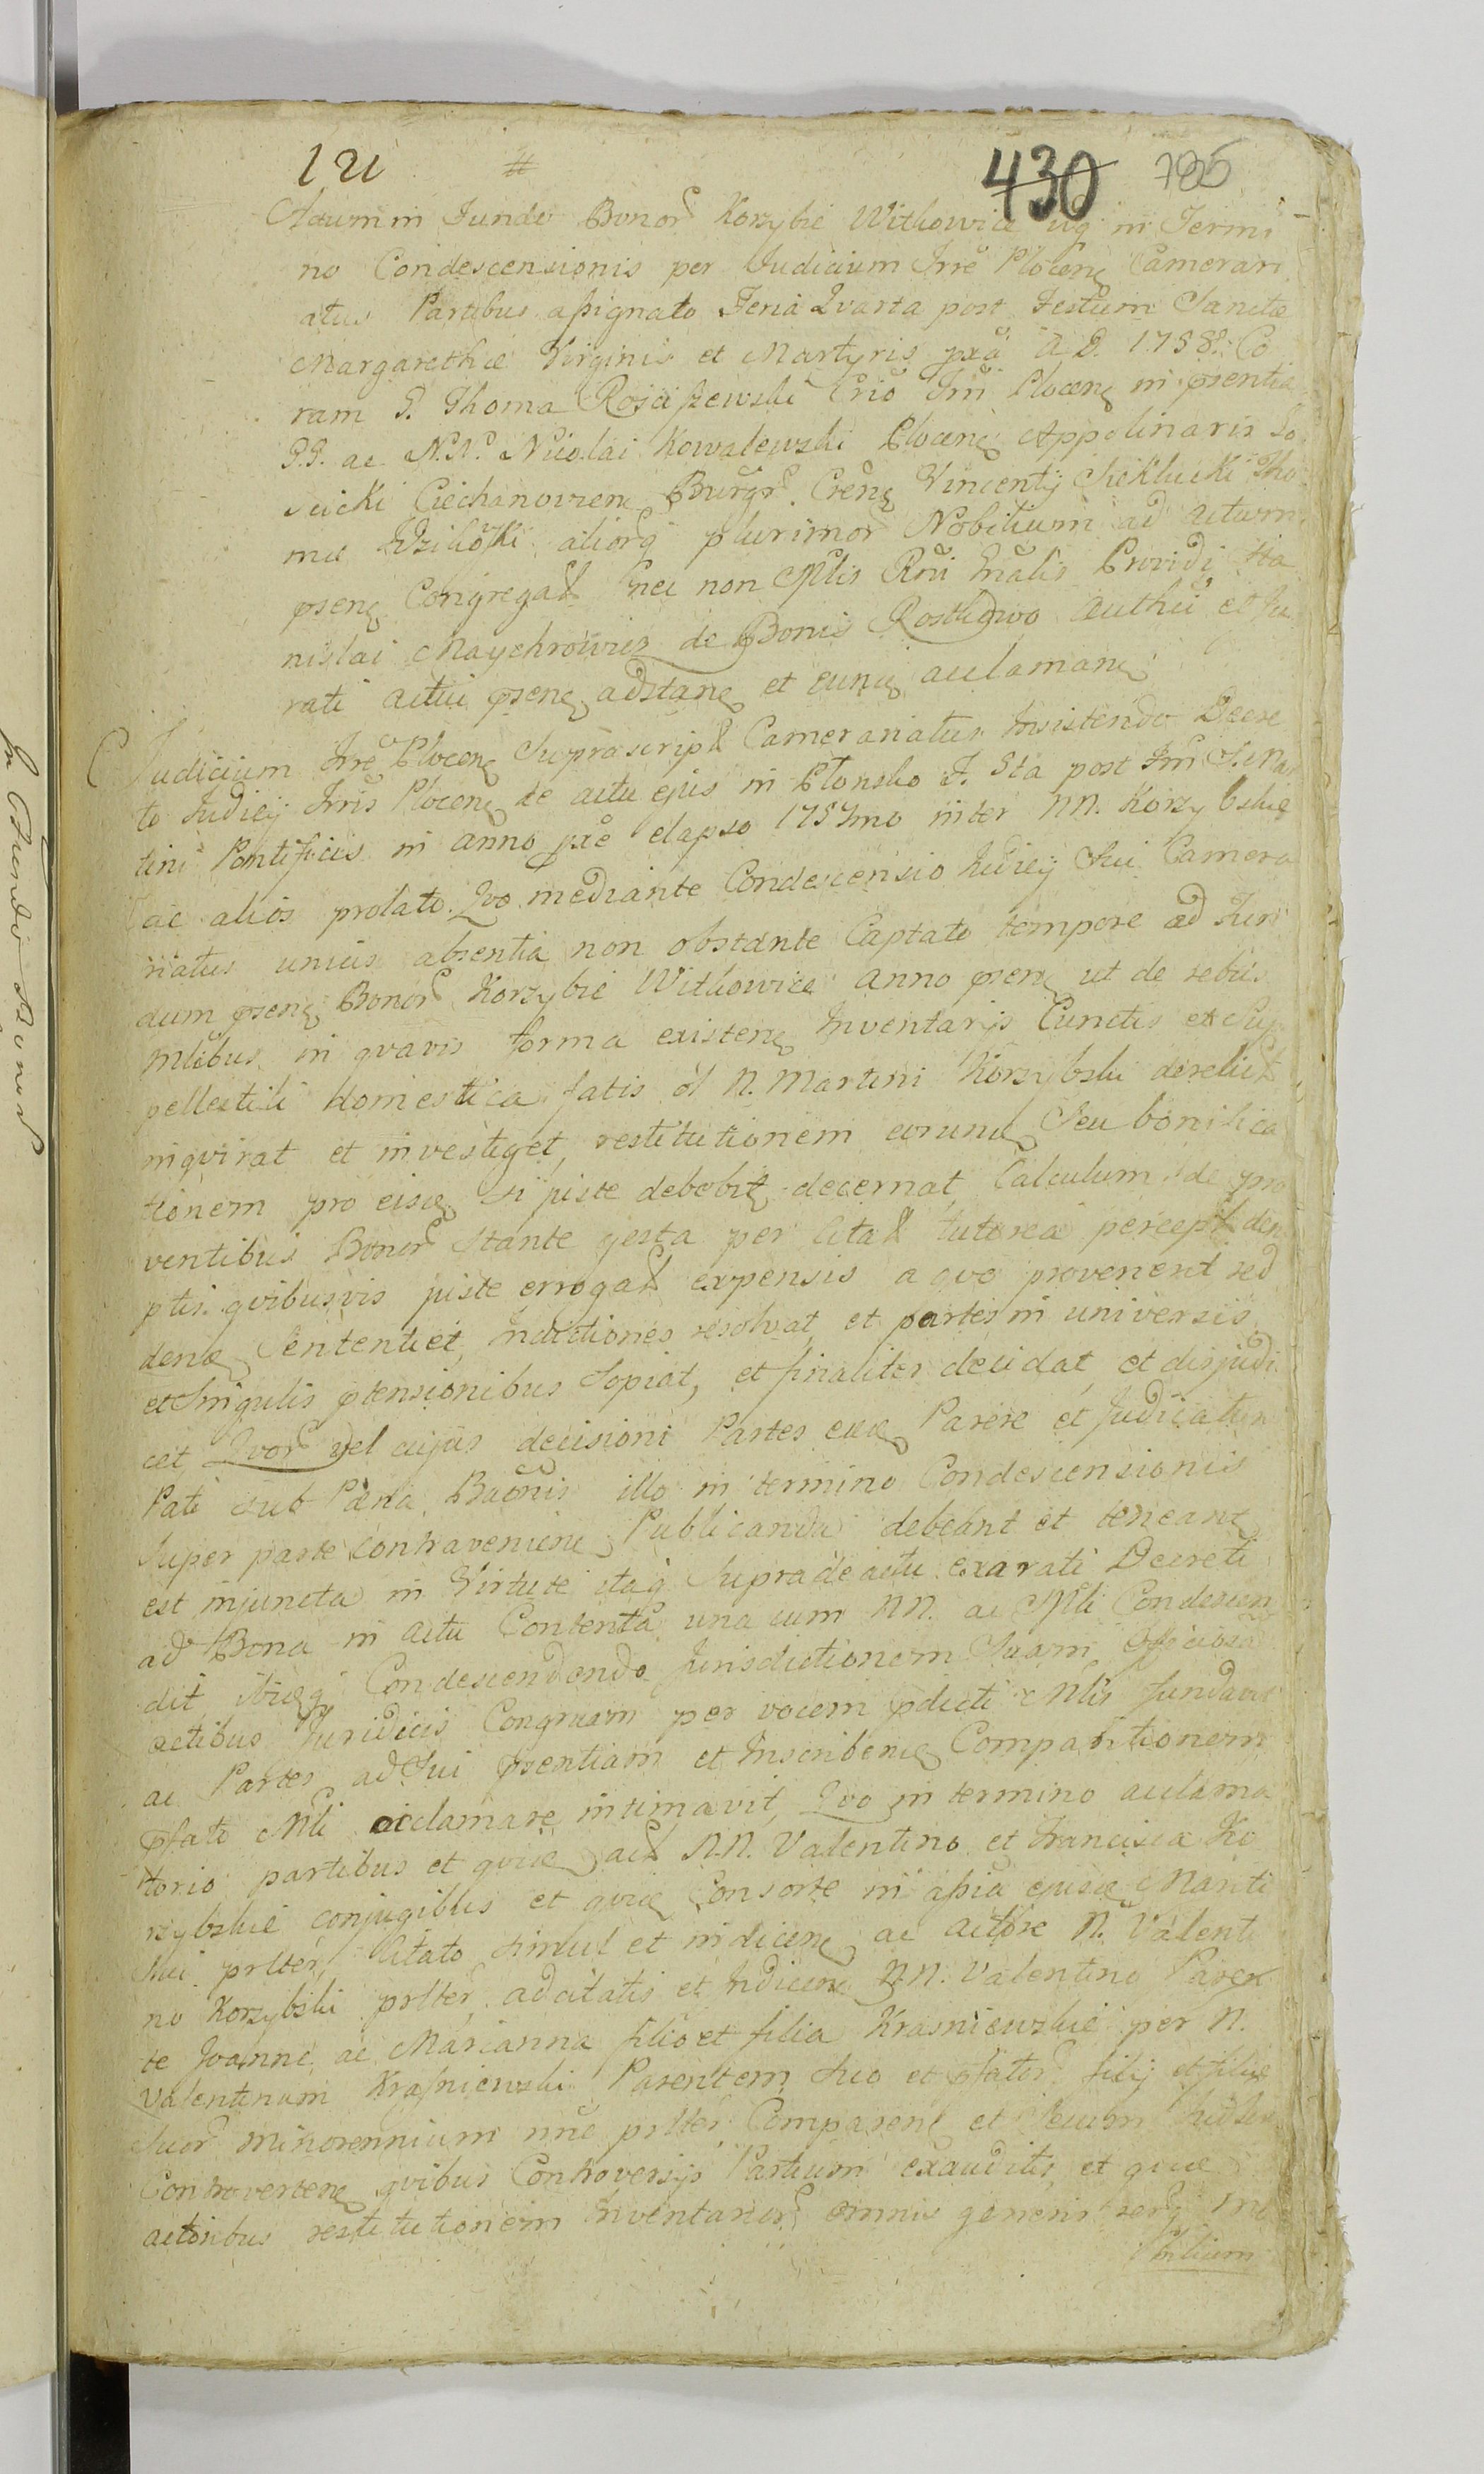 121 # 430 785
Actum in Fundo Bonor Korzybie Witkowice vg in Termi
no Condescensionis per Judicium Trre Plocen Camerari
atus Partibus assignato Feria Qvarta post Festum Sanctæ
Margarethæ Virginis et Martyris pxa A D. 1758. Co
ram G. Thoma Rosciszewski Crio Trri Plocen in psentia
G.G. ac N.N. Nicolai Kowalewski Plocen Appolinaris So
scicki Ciechanovien Burgr Cren Vincentij Sieklucki Tho
mæ Wzilioski aliorq plurimor Nobilium ad actum
psen Congregat nec non Mlis Rni Gnalis Providi Sta
nislai Maychrowicz de Bonis Rostkowo authci et Ju
rati actui psen adstan et cunc acclaman
Judicium Trre Plocen Suprascript Camerariatus Insistendo Decre
to Judicij Trris Plocen de actu ejus in Płonsko F. 5ta post Fm S. Mar
tini Pontificis in anno pxe elapso 1757mo inter NN. Korzybskie
ac alios prolato. Qvo mediante Condescensio Judicij Sui Camera
riatus unius absentia non obstante Captato tempore ad Fun
dum psen Bonor Korzybie Witkowice anno psen ut de rebus
mlibus in qvavis forma existen Inventarijs Cunctis et Sup
pellectili domestica fatis ol N. Martini Korzybski derelict
inqvirat et investiget, restitutionem eorund Seu bonifica
tionem pro eisd Si juste debebit decernat Calculum de pro
ventibus Bonor Stante gesta per Citat tutorea percept dem
ptis qvibusvis juste errogat expensis a qvo provenerit red
dend Sententiet, Inductiones resolvat et partes in universis
et Singulis ptensionibus Sopiat, et finaliter decidat et disjudi
cet Qvor vel cujus decisioni Partes eæd Parere et Judicatum
Pati sub Pæna Baonis illo in termino Condescensionis
Super parte contravenien Publicanda debeant et teneant
est injuncta in Virtute itaq Supra de actu exarati Decreti
ad Bona in actu Contenta una cum NN. ac Mli Condescen
dit, ibidq Condescendendo Jurisdictionem Suam Officiosa
actibus Juridicis Congruam per vocem pdicti Mlis fundavit
ac Partes ad Sui psentiam et Inscribend Comparitionem
pfato Mli acclamare intimavit, Qvo in termino acclama
torio partibus et qvid act N.N. Valentino et Francisca Ko
rzybskie conjugibus et qvid Consorte in assia ejusd Mariti
Sui prlter citato simul et indicen ac actore N. Valenti
no Korzybski prlter adcitatis et Indicen N.N. Valentino Paren
te Joanne ac Marianna filio et filia Krasniewskie per N.
Valentinum Krasniewski Parentem Suo et pfator filij et filiæ
Suor minorennium nne prlter Comparen et
Controverten qvibus Controversijs Partium exauditis et qvid
actoribus restitutionem Inventarior omnis generis rerq mo
bilium